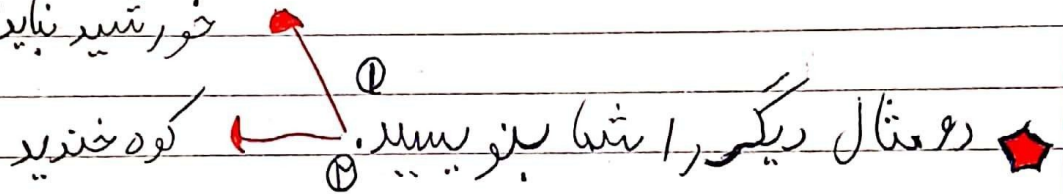 خورشید تابید
①
★ دو مثال دیگر را شما بنویسید. ② کوه خندید